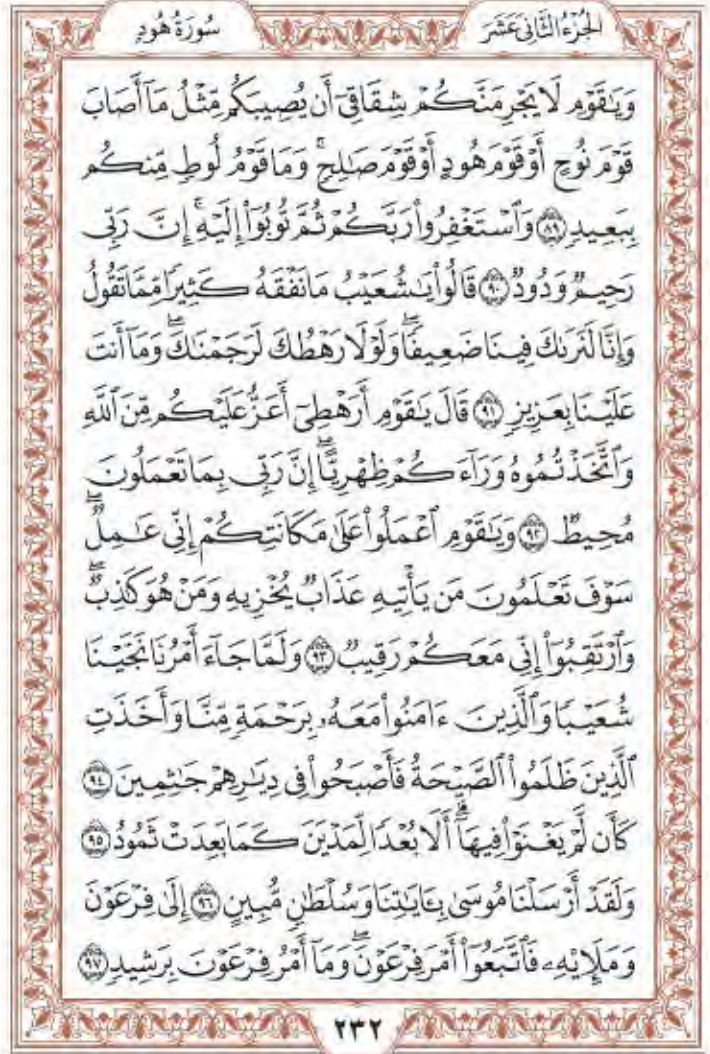 الجُزْءُ الثَّانِي عَشَرَ
سُورَةُ هُودٍ
وَيَٰقَوْمِ لَا يَجْرِمَنَّكُمْ شِقَاقِىٓ أَن يُصِيبَكُم مِّثْلُ مَآ أَصَابَ
قَوْمَ نُوحٍ أَوْ قَوْمَ هُودٍ أَوْ قَوْمَ صَٰلِحٍ ۚ وَمَا قَوْمُ لُوطٍ مِّنكُم
بِبَعِيدٍ ٨٩ وَٱسْتَغْفِرُوا۟ رَبَّكُمْ ثُمَّ تُوبُوٓا۟ إِلَيْهِ ۚ إِنَّ رَبِّى
رَحِيمٌ وَدُودٌ ٩٠ قَالُوا۟ يَٰشُعَيْبُ مَا نَفْقَهُ كَثِيرًا مِّمَّا تَقُولُ
وَإِنَّا لَنَرَىٰكَ فِينَا ضَعِيفًا ۖ وَلَوْلَا رَهْطُكَ لَرَجَمْنَٰكَ ۖ وَمَآ أَنتَ
عَلَيْنَا بِعَزِيزٍ ٩١ قَالَ يَٰقَوْمِ أَرَهْطِىٓ أَعَزُّ عَلَيْكُم مِّنَ ٱللَّهِ
وَٱتَّخَذْتُمُوهُ وَرَآءَكُمْ ظِهْرِيًّا ۖ إِنَّ رَبِّى بِمَا تَعْمَلُونَ
مُحِيطٌ ٩٢ وَيَٰقَوْمِ ٱعْمَلُوا۟ عَلَىٰ مَكَانَتِكُمْ إِنِّى عَٰمِلٌ ۖ
سَوْفَ تَعْلَمُونَ مَن يَأْتِيهِ عَذَابٌ يُخْزِيهِ وَمَنْ هُوَ كَٰذِبٌ ۖ
وَٱرْتَقِبُوٓا۟ إِنِّى مَعَكُمْ رَقِيبٌ ٩٣ وَلَمَّا جَآءَ أَمْرُنَا نَجَّيْنَا
شُعَيْبًا وَٱلَّذِينَ ءَامَنُوا۟ مَعَهُۥ بِرَحْمَةٍ مِّنَّا وَأَخَذَتِ
ٱلَّذِينَ ظَلَمُوا۟ ٱلصَّيْحَةُ فَأَصْبَحُوا۟ فِى دِيَٰرِهِمْ جَٰثِمِينَ ٩٤
كَأَن لَّمْ يَغْنَوْا۟ فِيهَآ ۗ أَلَا بُعْدًا لِّمَدْيَنَ كَمَا بَعِدَتْ ثَمُودُ ٩٥
وَلَقَدْ أَرْسَلْنَا مُوسَىٰ بِـَٔايَٰتِنَا وَسُلْطَٰنٍ مُّبِينٍ ٩٦ إِلَىٰ فِرْعَوْنَ
وَمَلَإِي۟هِۦ فَٱتَّبَعُوٓا۟ أَمْرَ فِرْعَوْنَ ۖ وَمَآ أَمْرُ فِرْعَوْنَ بِرَشِيدٍ ٩٧
٢٣٢